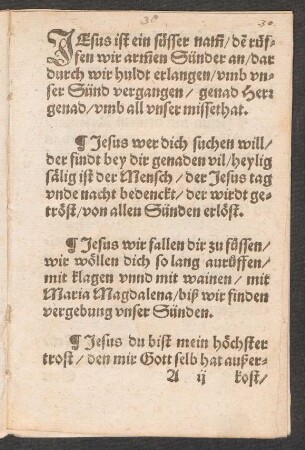 30 30.
JEsus ist ein süsser nam̃/ dē rüf-
fen wir armen Sünder an/ dar
durch wir huldt erlangen/ vmb vn-
ser Sünd vergangen/ genad Herr
genad/ vmb all vnser missethat.
¶ Jesus wer dich suchen will/
der findt bey dir genaden vil/ heylig
sälig ist der Mensch/ der Jesus tag
vnde nacht bedenckt/ der wirdt ge-
tröst/ von allen Sünden erlöst.
¶ Jesus wir fallen dir zu füssen/
wir wöllen dich so lang anrüffen/
mit klagen vnnd mit wainen/ mit
Maria Magdalena/ biß wir finden
vergebung vnser Sünden.
¶ Jesus du bist mein höchster
trost/ den mir Gott selb hat außer-
A ij kost/